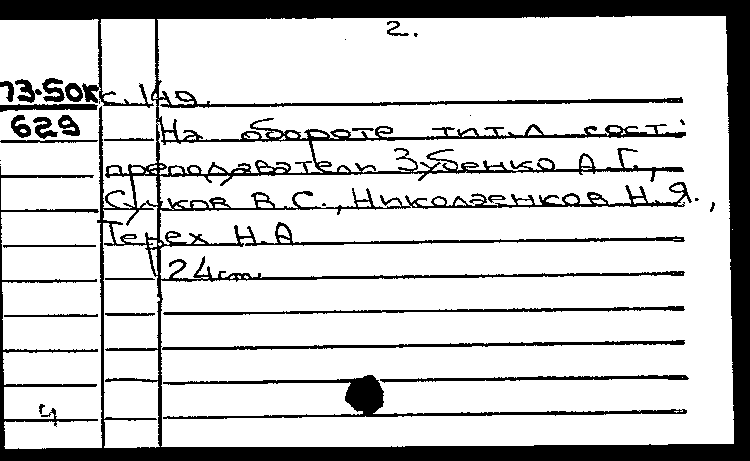 2.
73-50K с. 149.
629 На обороте тит.л сост.:
преподаватели Зубенко А.Г.,
Суков В.С., Николаенков Н.Я.,
Терех Н.А
24cm.
4